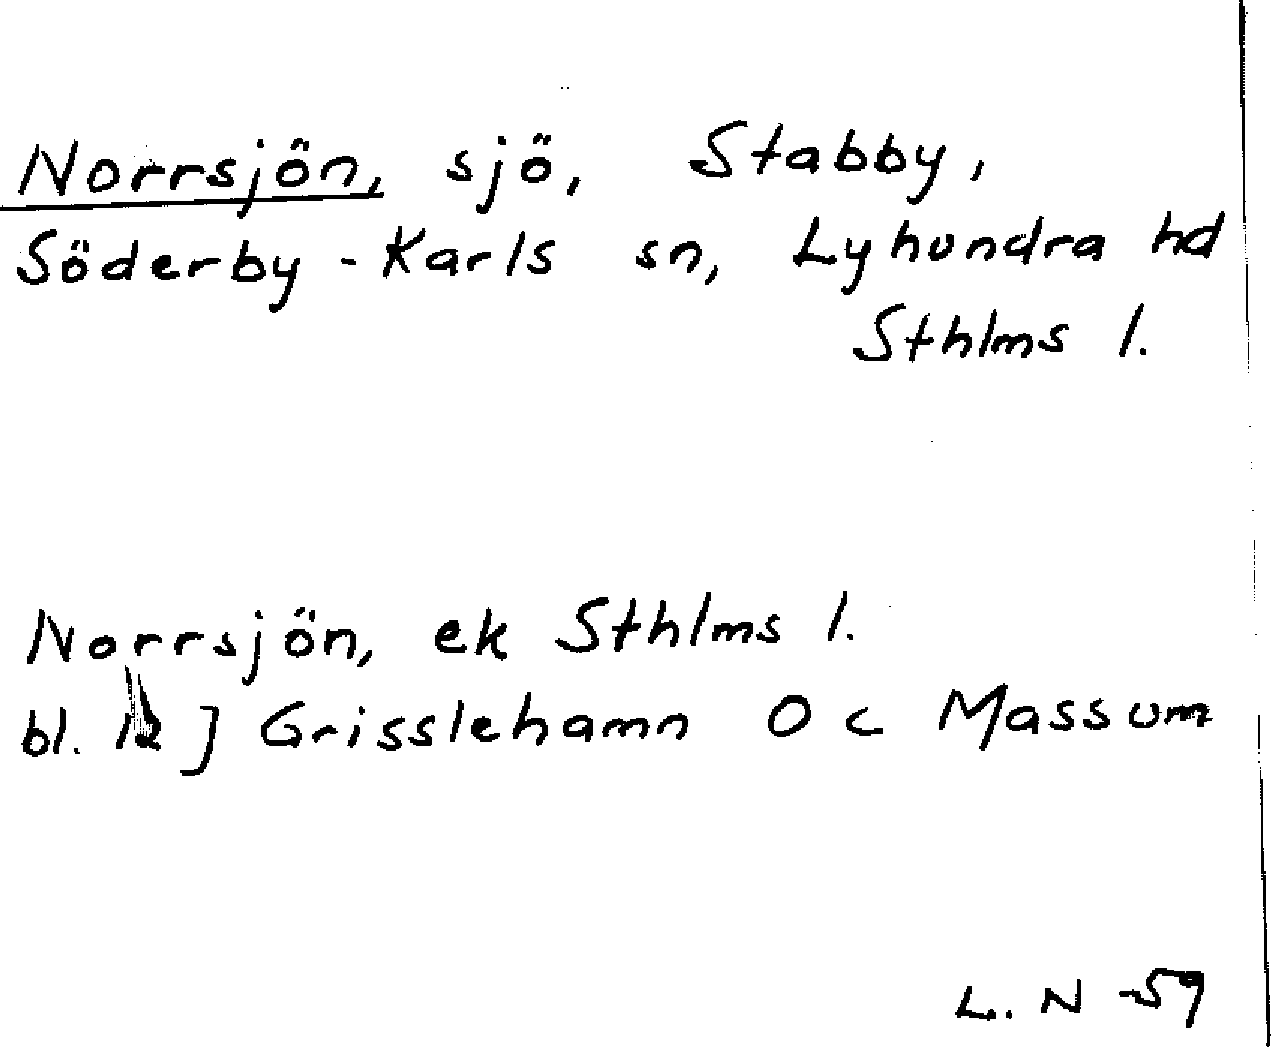 Norrsjön, sjö, Stabby,
Söderby-Karls sn, Lyhundra hd
Sthlms l.
Norrsjön, ek Sthlms l.
bl. 12 J Grisslehamn O c Massum
L. N -59